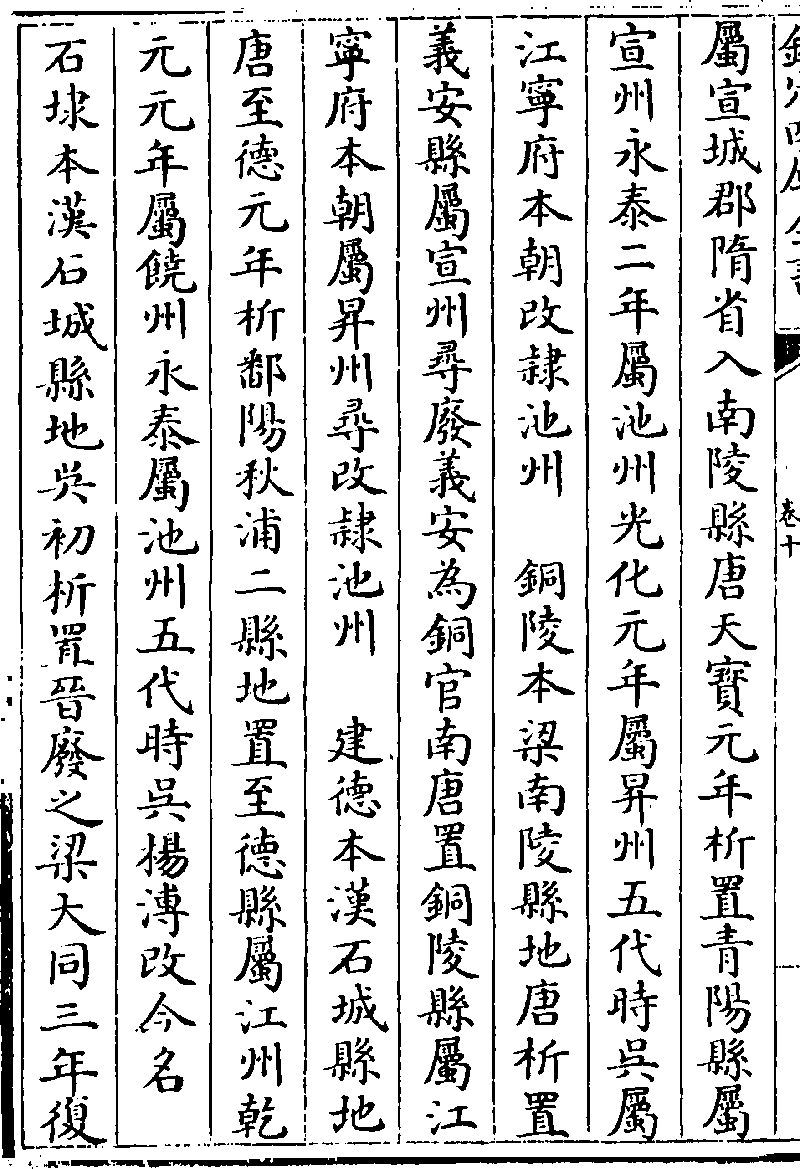 欽定四庫全書
卷十
屬宣城郡隋省入南陵縣唐天寶元年析置青陽縣屬
宣州永泰二年屬池州光化元年屬昇州五代時吳屬
江寧府本朝改隷池州　銅陵本梁南陵縣地唐析置
義安縣屬宣州尋廢義安為銅官南唐置銅陵縣屬江
寧府本朝屬昇州尋改隷池州　建德本漢石城縣地
唐至德元年析鄱陽秋浦二縣地置至德縣屬江州乾
元元年屬饒州永泰屬池州五代時吳楊溥改今名
石埭本漢石城縣地吳初析置晉廢之梁大同三年復